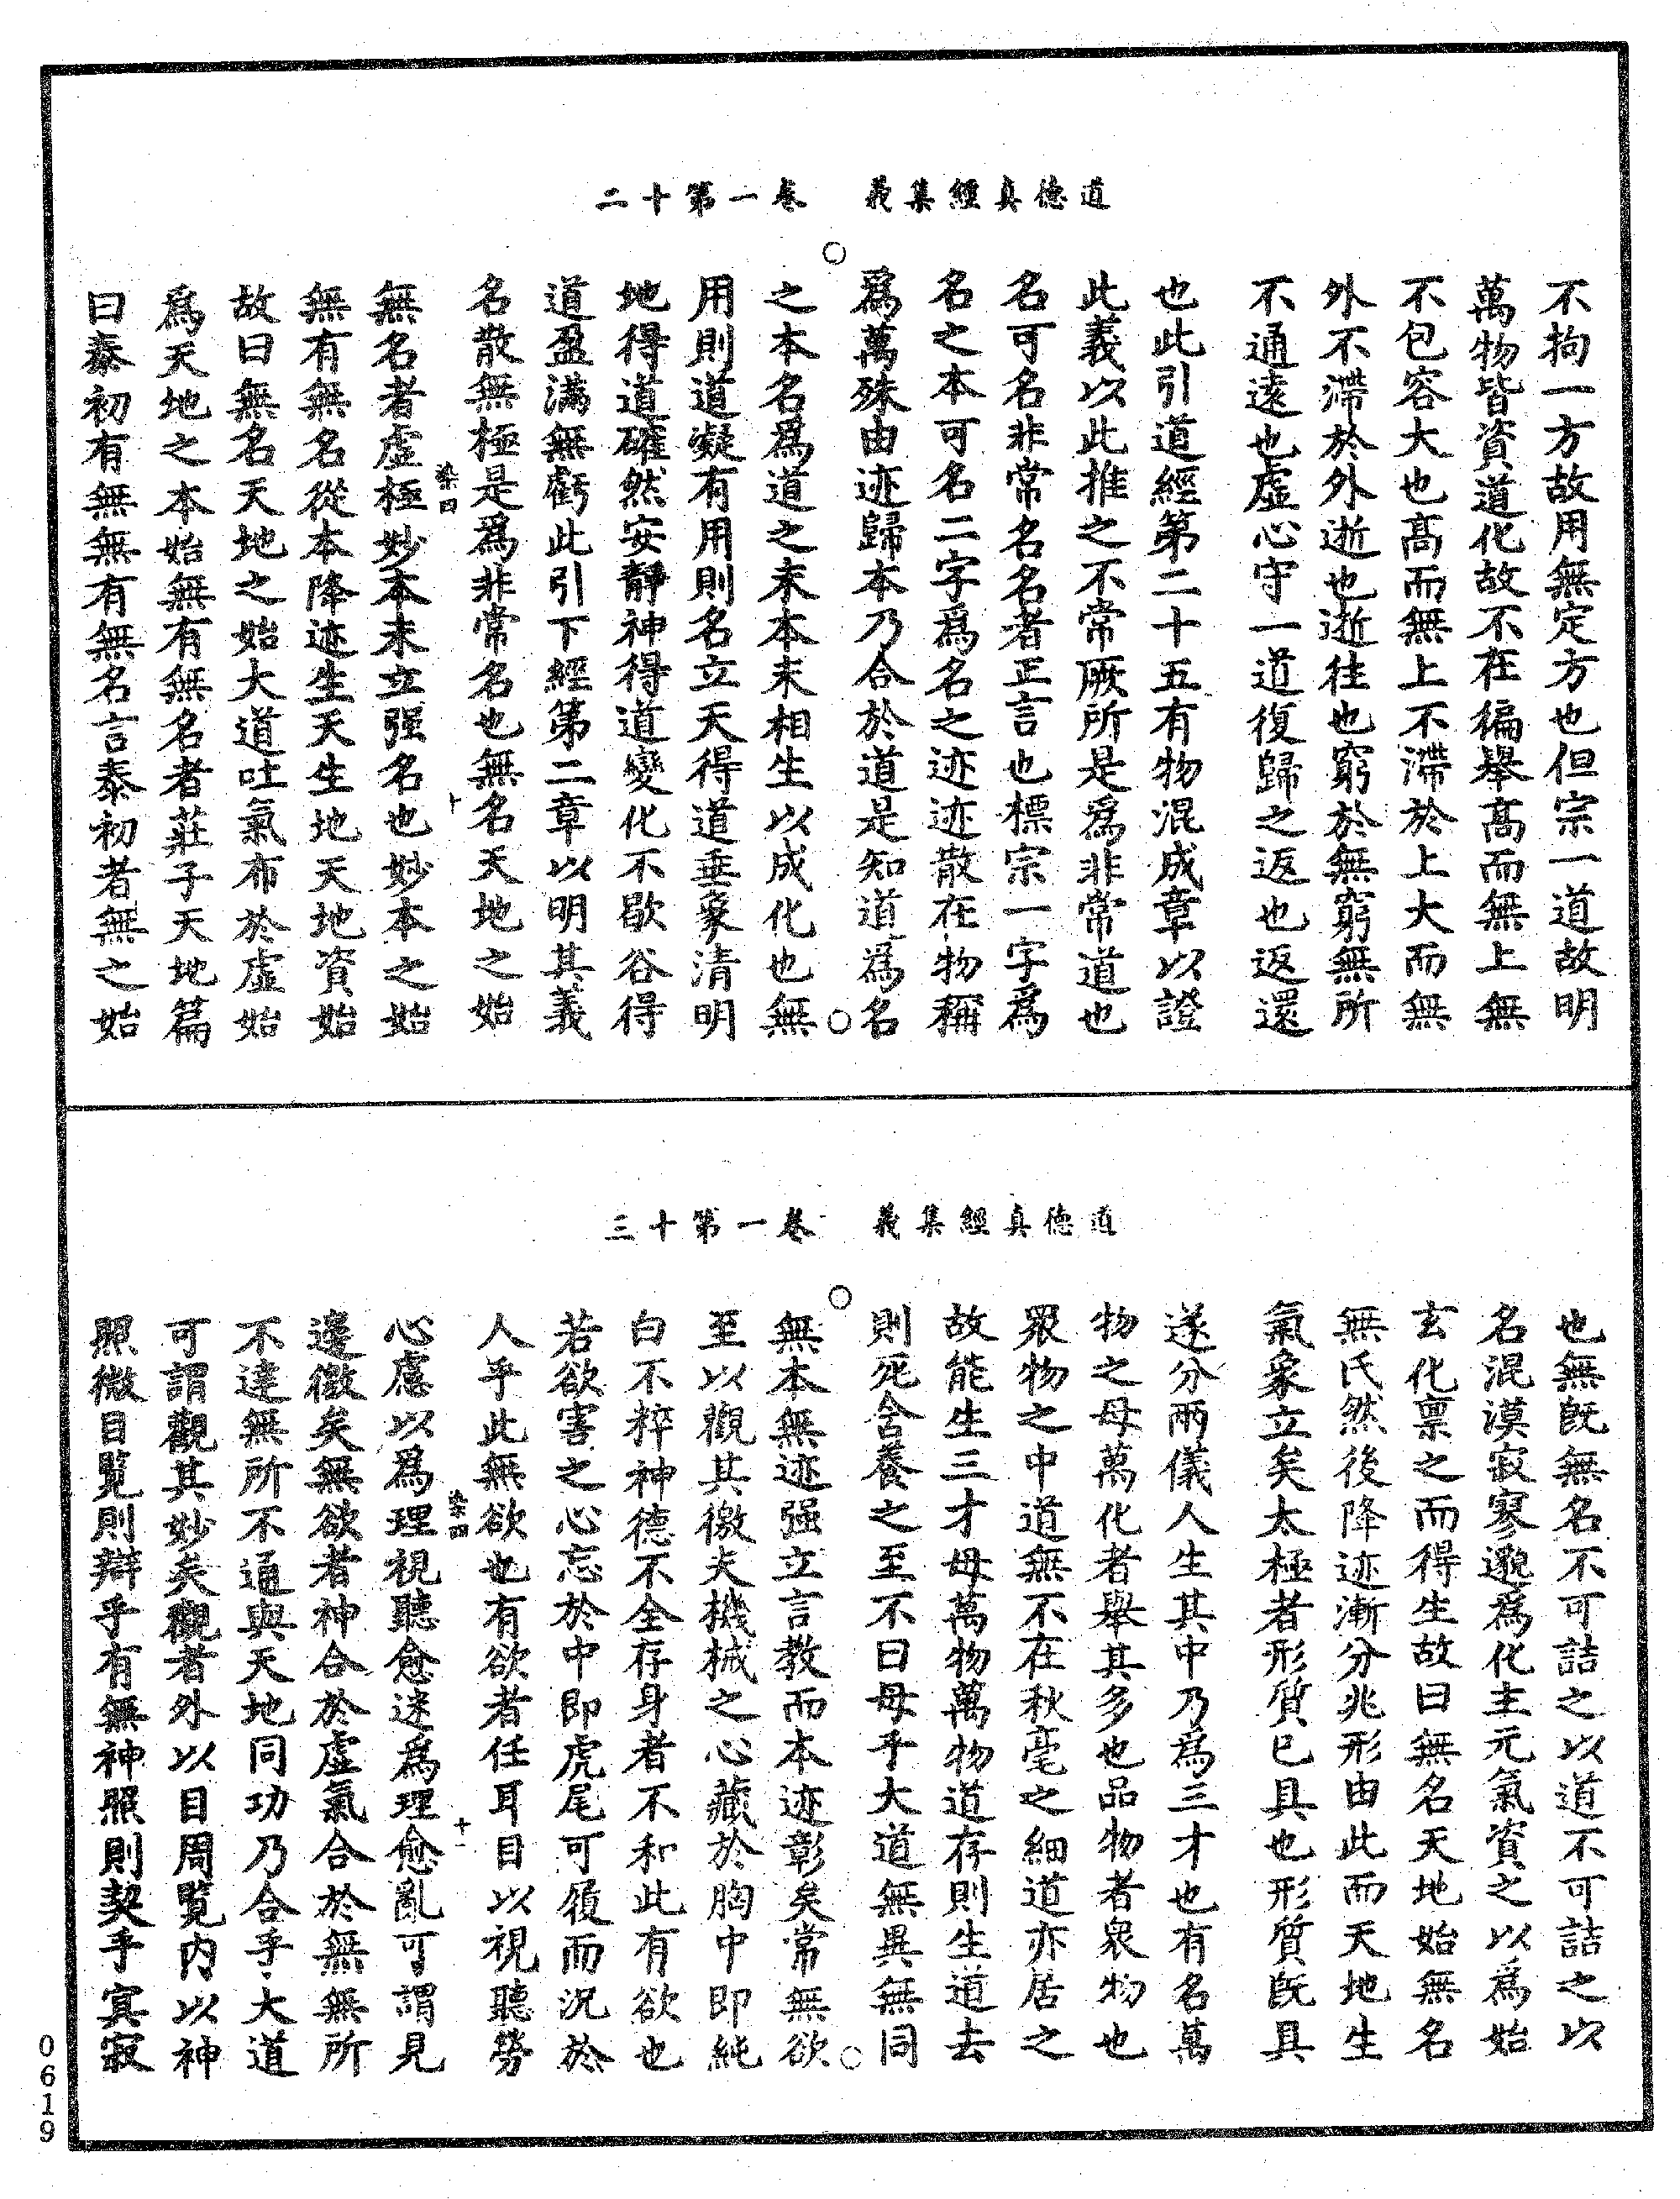 道德真經集義　卷一第十二
不拘一方故用無定方也但宗一道故明
萬物皆資道化故不在徧舉高而無上無
不包容大也高而無上不滯於上大而無
外不滯於外逝也逝往也窮於無窮無所
不通遠也虛心守一道復歸之返也返還
也此引道經第二十五有物混成章以證
此義以此推之不常厥所是爲非常道也
名可名非常名名者正言也標宗一字爲
名之本可名二字爲名之迹迹散在物稱
爲萬殊由迹歸本乃合於道是知道爲名
之本名爲道之末本末相生以成化也無
用則道凝有用則名立天得道垂象清明
地得道確然安靜神得道變化不歇谷得
道盈滿無虧此引下經第二章以明其義
名散無極是爲非常名也無名天地之始
染四
十
無名者虛極妙本末立强名也妙本之始
無有無名從本降迹生天生地天地資始
故曰無名天地之始大道吐氣布於虛始
爲天地之本始無有無名者莊子天地篇
曰泰初有無無有無名言泰初者無之始
道德真經集義　卷一第十三
也無旣無名不可詰之以道不可詰之以
名混漠寂寥邈爲化主元氣資之以爲始
玄化禀之而得生故曰無名天地始無名
無氏然後降迹漸分兆形由此而天地生
氣象立矣太極者形質已具也形質旣具
遂分兩儀人生其中乃爲三才也有名萬
物之母萬化者舉其多也品物者衆物也
衆物之中道無不在秋毫之細道亦居之
故能生三才母萬物萬物道存則生道去
則死含養之至不曰母乎大道無異無同
無本無迹强立言教而本迹彰矣常無欲
至以觀其徼夫機械之心藏於胸中即純
白不粹神德不全存身者不和此有欲也
若欲害之心忘於中即虎尾可履而況於
人乎此無欲也有欲者任耳目以視聽勞
染四
十一
心慮以爲理視聽愈迷爲理愈亂可謂見
邊徼矣無欲者神合於虛氣合於無無所
不達無所不通與天地同功乃合乎大道
可謂觀其妙矣觀者外以目周覽内以神
照微目覽則辯乎有無神照則契乎寞寂
0619